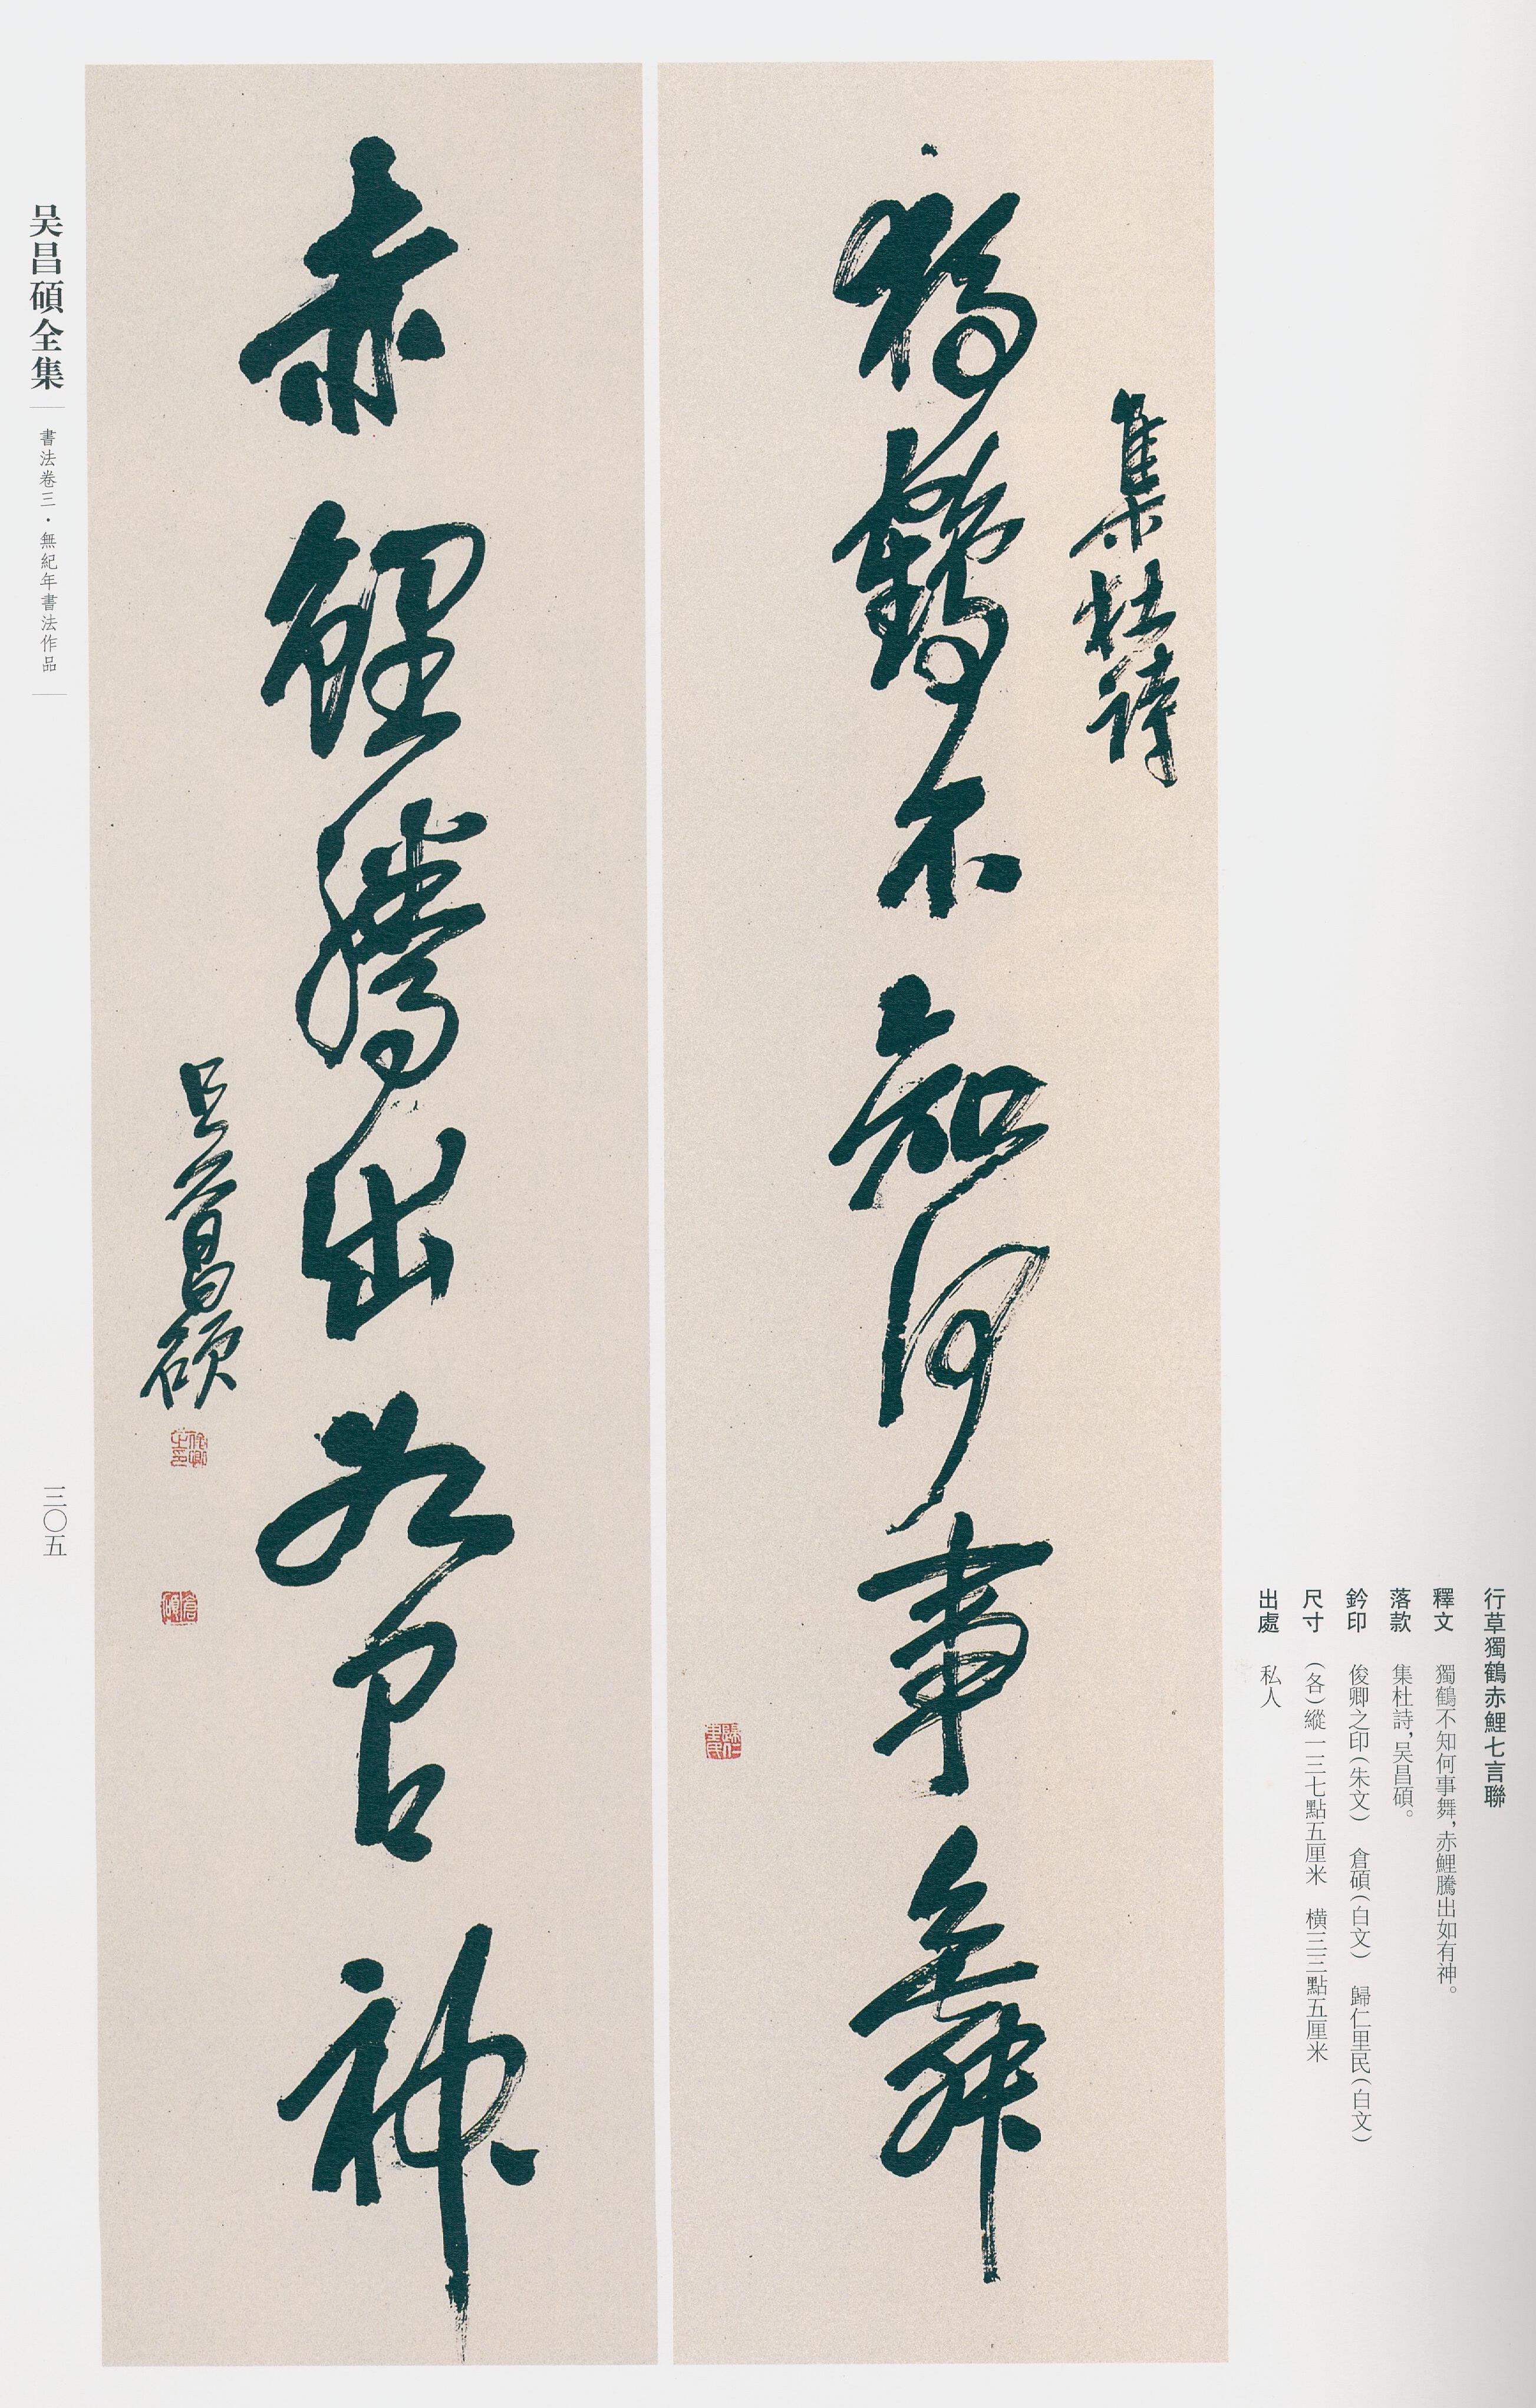 行草獨鶴赤鯉七言聯
釋文　獨鶴不知何事舞，赤鯉騰出如有神。
落款　集杜詩，吴昌碩。
鈐印　俊卿之印（朱文）　倉碩（白文）　歸仁里民（白文）
尺寸　（各）縱一三七點五厘米　橫三三點五厘米
出處　私人
集杜詩
獨鶴不知何事舞
歸仁里民
赤鯉騰出如有神
吴昌碩
俊卿之印
倉碩
吴昌碩全集
書法卷三·無紀年書法作品
三〇五